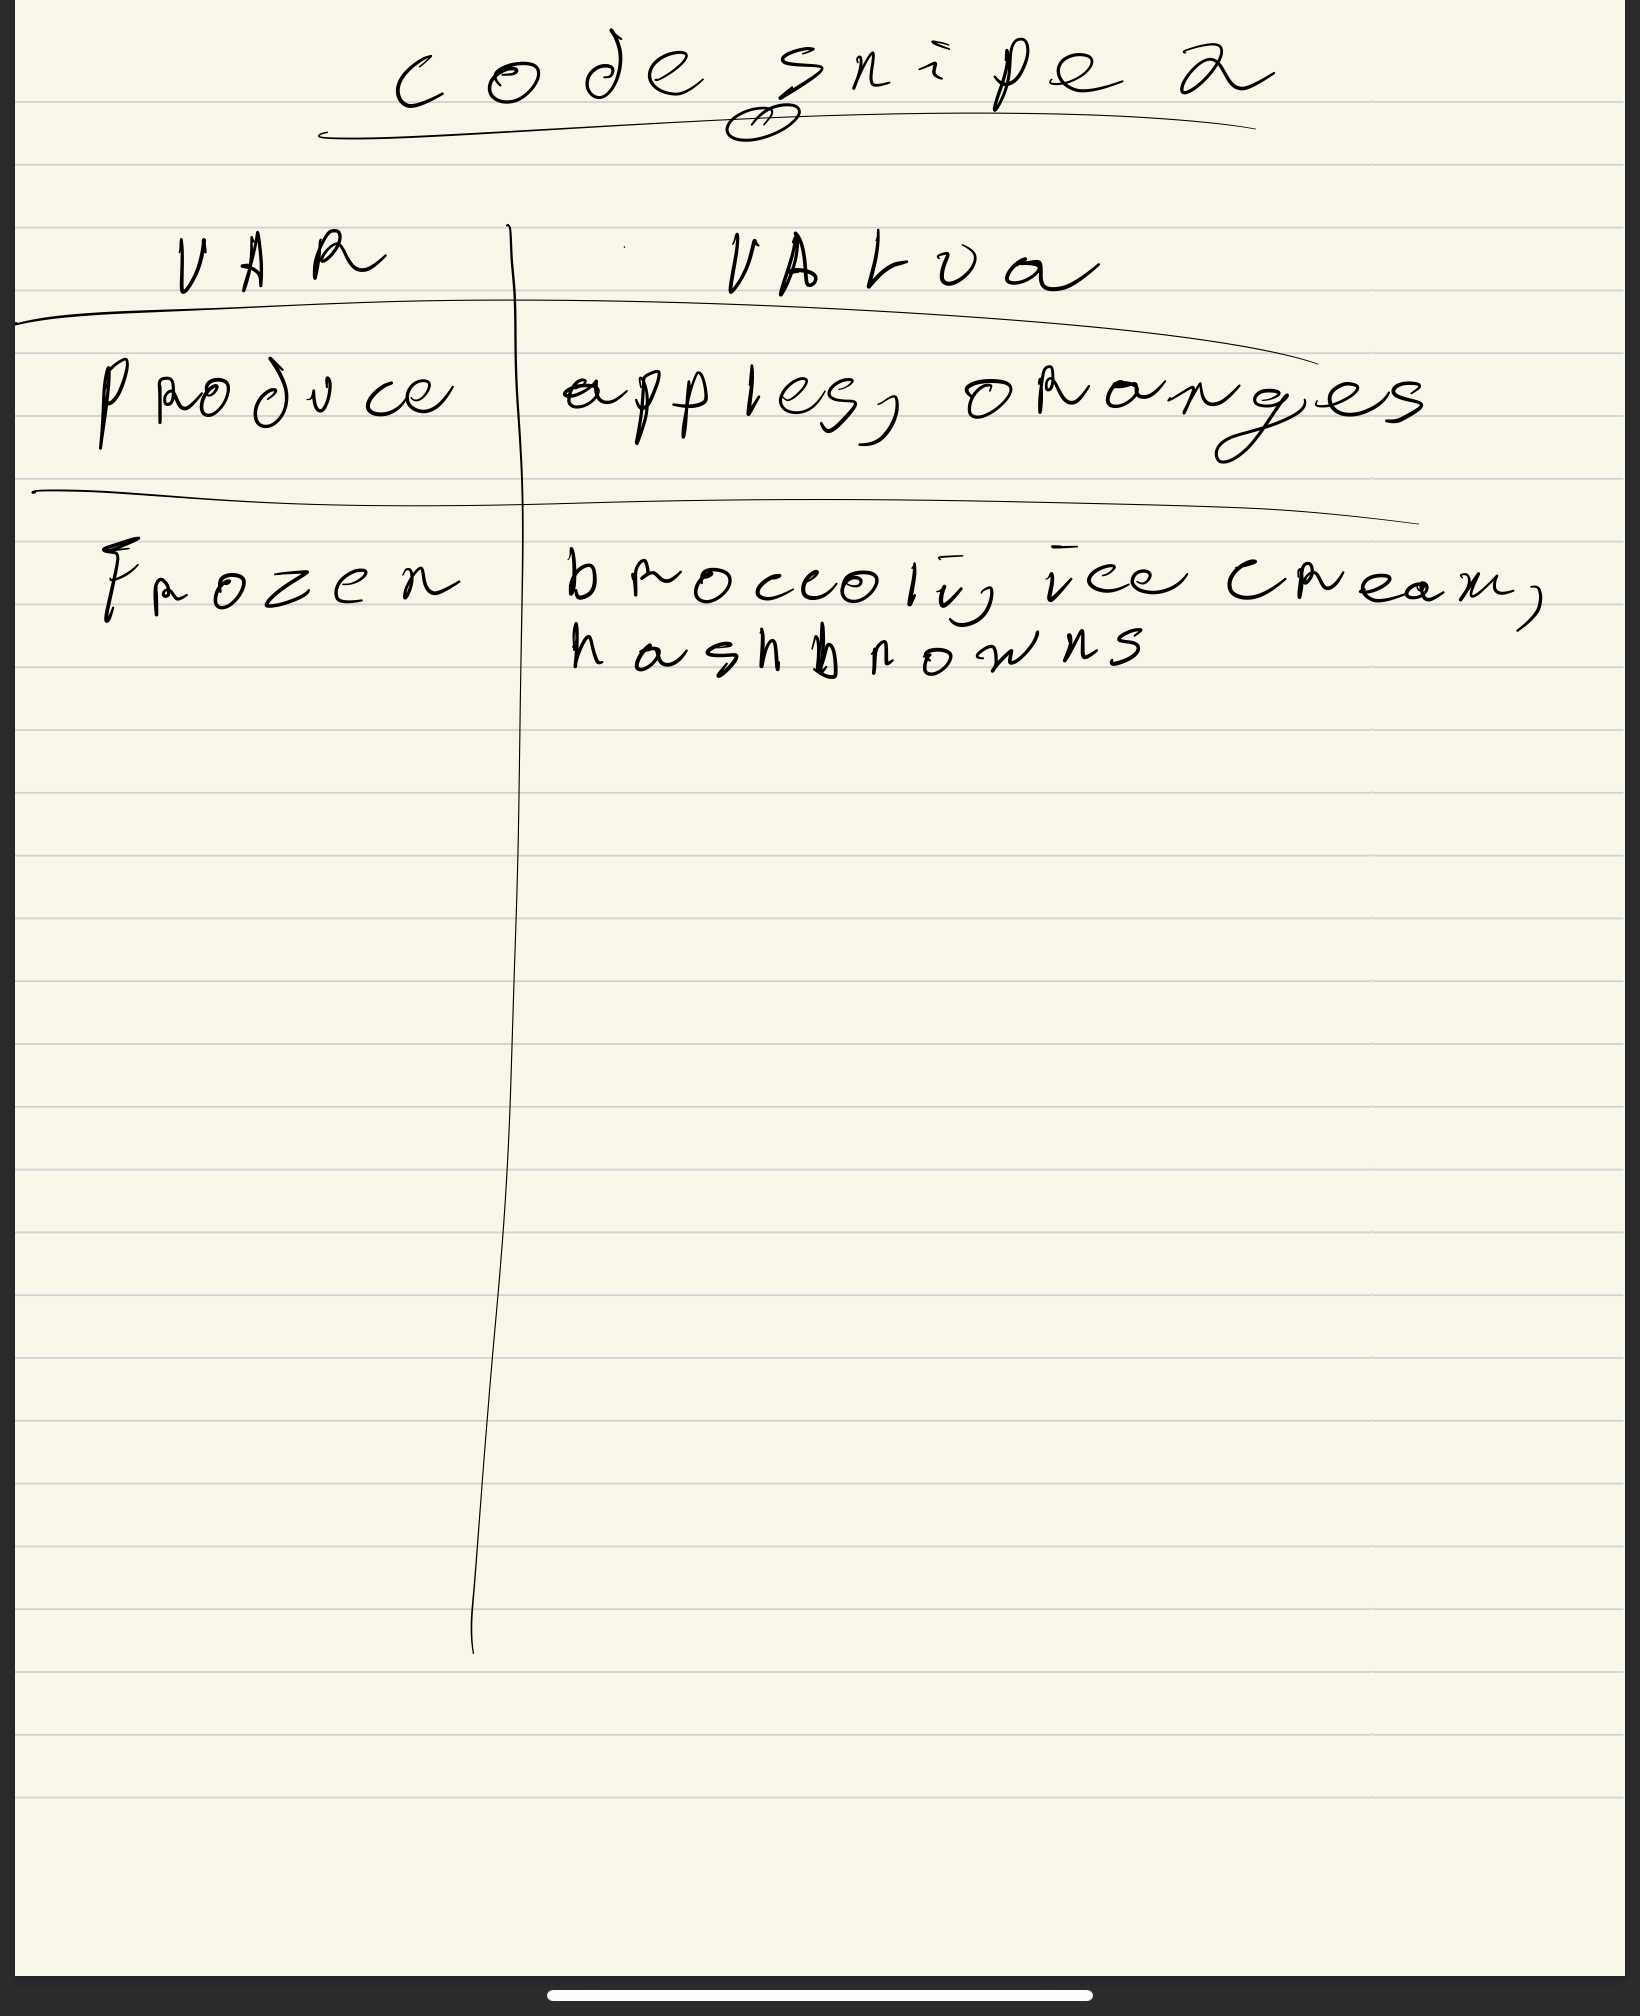 code snipe 2
VAR VALUA
produce apples, oranges
Frozen broccoli, ice cream,
hashbrowns